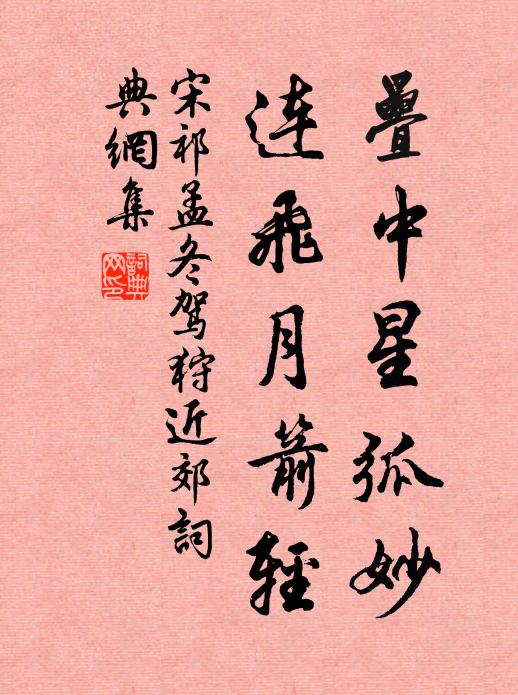 疊中星弧妙
連飛月箭輕
宋祁孟冬駕狩近郊詞
典網集
詞典
网印